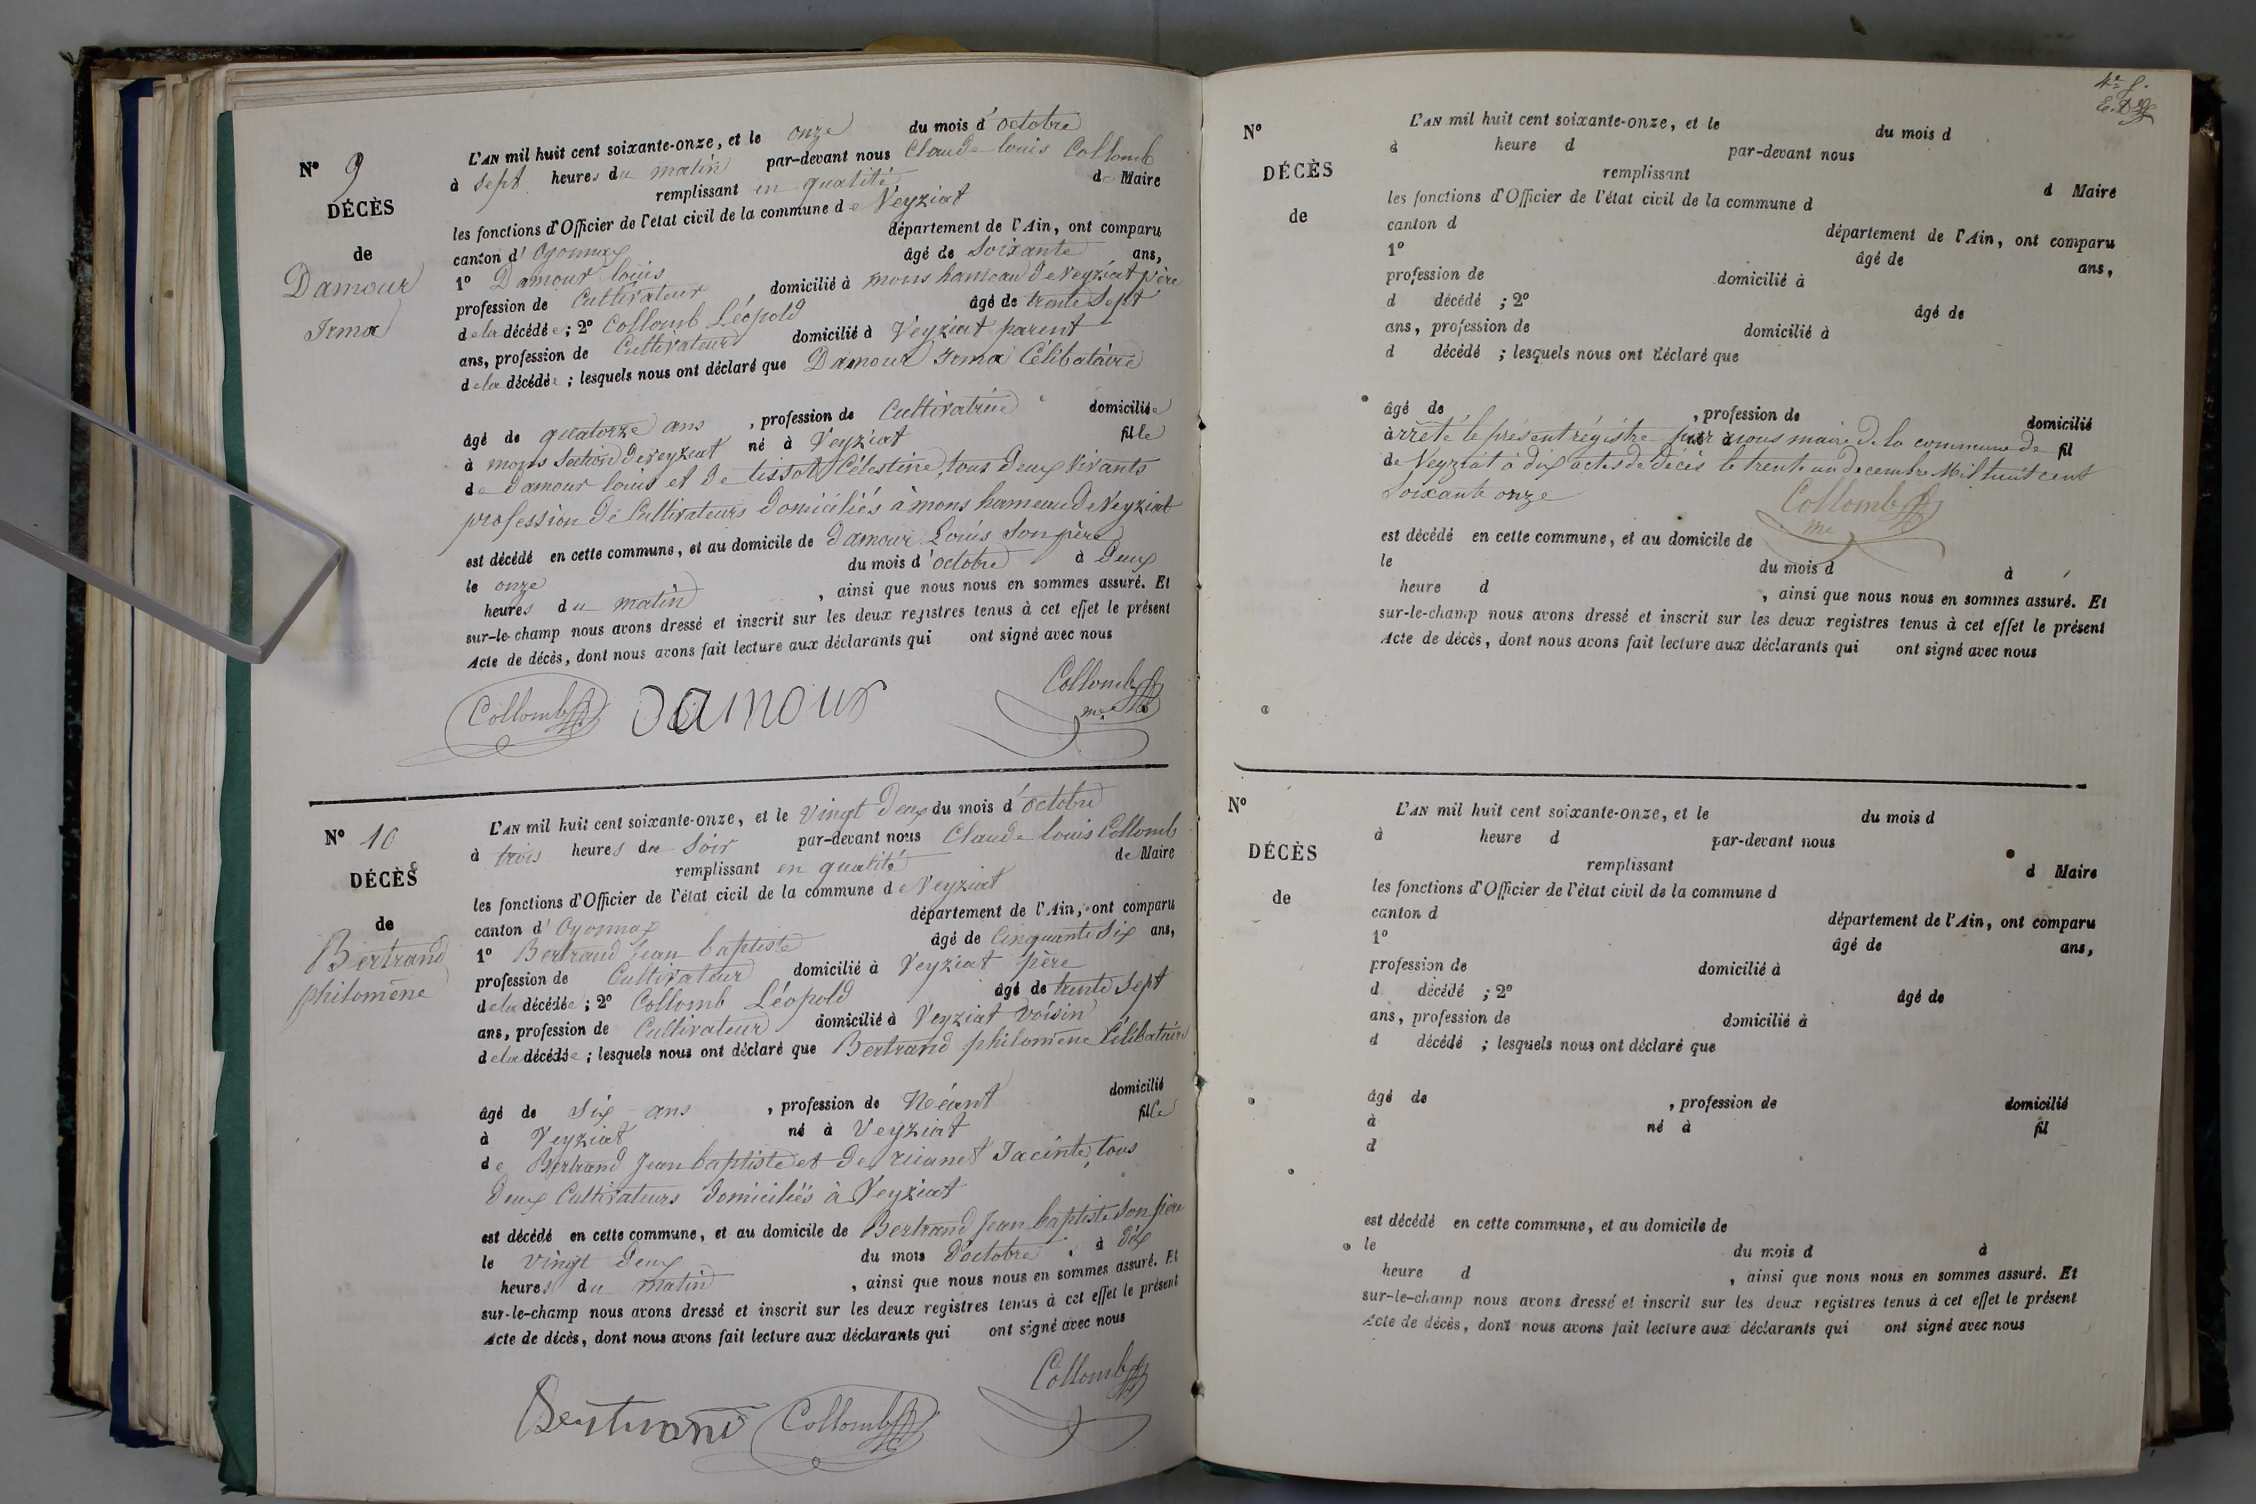 N° 9
DÉCÈS
de
Damour
Irma
L'AN mil huit cent soixante-onze, et le onze du mois d'octobre
à sept heures du matin par-devant nous Claude louis Collomb
remplissant en qualité de Maire
les fonctions d'Officier de l'état civil de la commune de Veyziat
canton d'Oyonnax département de l'Ain, ont comparu
1° Damour louis âgé de Soixante ans,
profession de Cultivateur domicilié à mons hameau de veyziat père
de la décédée ; 2° Collomb Léopold âgé de trente Sept
ans, profession de Cultivateur domicilié à Veyziat parent
de la décédée ; lesquels nous ont déclaré que Damour Irma Célibataire
âgé de quatorze ans , profession de Cultivatrice domiciliée
à mons Section de veyziat né à Veyziat fille
de Damour louis et de tissot Célestine, tous deux vivants
profession de Cultivateurs domiciliés à mons hameau de Veyziat
est décédé en cette commune, et au domicile de damour Louis son père
le onze du mois d'octobre à deux
heures du matin , ainsi que nous nous en sommes assuré. Et
sur-le-champ nous avons dressé et inscrit sur les deux registres tenus à cet effet le présent
Acte de décès, dont nous avons fait lecture aux déclarants qui ont signé avec nous
Collomb damour Collomb
me
N° 10
DÉCÈS
de
Bertrand
philomène
L'AN mil huit cent soixante-onze, et le vingt deux du mois d'octobre
à trois heures du Soir par-devant nous Claude louis Collomb
remplissant en qualité de Maire
les fonctions d'Officier de l'état civil de la commune de Veyziat
canton d'Oyonnax département de l'Ain, ont comparu
1° Bertrand Jean baptiste âgé de Cinquante Six ans,
profession de Cultivateur domicilié à Veyziat père
de la décédée ; 2° Collomb Léopold âgé de trente Sept
ans, profession de Cultivateur domicilié à Veyziat voisin
de la décédée ; lesquels nous ont déclaré que Bertrand philomène Célibataire
âgé de Six ans , profession de Néant domicilié
à Veyziat né à Veyziat fille
de Bertrand Jean baptiste et de Jacinte, tous
deux Cultivateurs domiciliés à Veyziat
est décédé en cette commune, et au domicile de Bertrand Jean baptiste son père
le vingt deux du mois d'octobre à dix
heures du matin , ainsi que nous nous en sommes assuré. Et
sur-le-champ nous avons dressé et inscrit sur les deux registres tenus à cet effet le présent
Acte de décès, dont nous avons fait lecture aux déclarants qui ont signé avec nous
Bertrand Collomb Collomb
N°
DÉCÈS
de
L'AN mil huit cent soixante-onze, et le du mois d
à heure d par-devant nous
remplissant d Maire
les fonctions d'Officier de l'état civil de la commune d
canton d département de l'Ain, ont comparu
1° âgé de ans,
profession de domicilié à
d décédé ; 2° âgé de
ans, profession de domicilié à
d décédé ; lesquels nous ont déclaré que
âgé de , profession de domicilié
à né à fil
d
arrêté le présent régistre par nous maire de la commune de
Veyziat à dix actes de décès le trente un decembre Mil huit cent
Soixante onze
Collomb
me
est décédé en cette commune, et au domicile de
le du mois d à
heure d , ainsi que nous nous en sommes assuré. Et
sur-le-champ nous avons dressé et inscrit sur les deux registres tenus à cet effet le présent
Acte de décès, dont nous avons fait lecture aux déclarants qui ont signé avec nous
N°
DÉCÈS
de
L'AN mil huit cent soixante-onze, et le du mois d
à heure d par-devant nous
remplissant d Maire
les fonctions d'Officier de l'état civil de la commune d
canton d département de l'Ain, ont comparu
1° âgé de ans,
profession de domicilié à
d décédé ; 2° âgé de
ans, profession de domicilié à
d décédé ; lesquels nous ont déclaré que
âgé de , profession de domicilié
à né à fil
d
est décédé en cette commune, et au domicile de
le du mois d à
heure d , ainsi que nous nous en sommes assuré. Et
sur-le-champ nous avons dressé et inscrit sur les deux registres tenus à cet effet le présent
Acte de décès, dont nous avons fait lecture aux déclarants qui ont signé avec nous